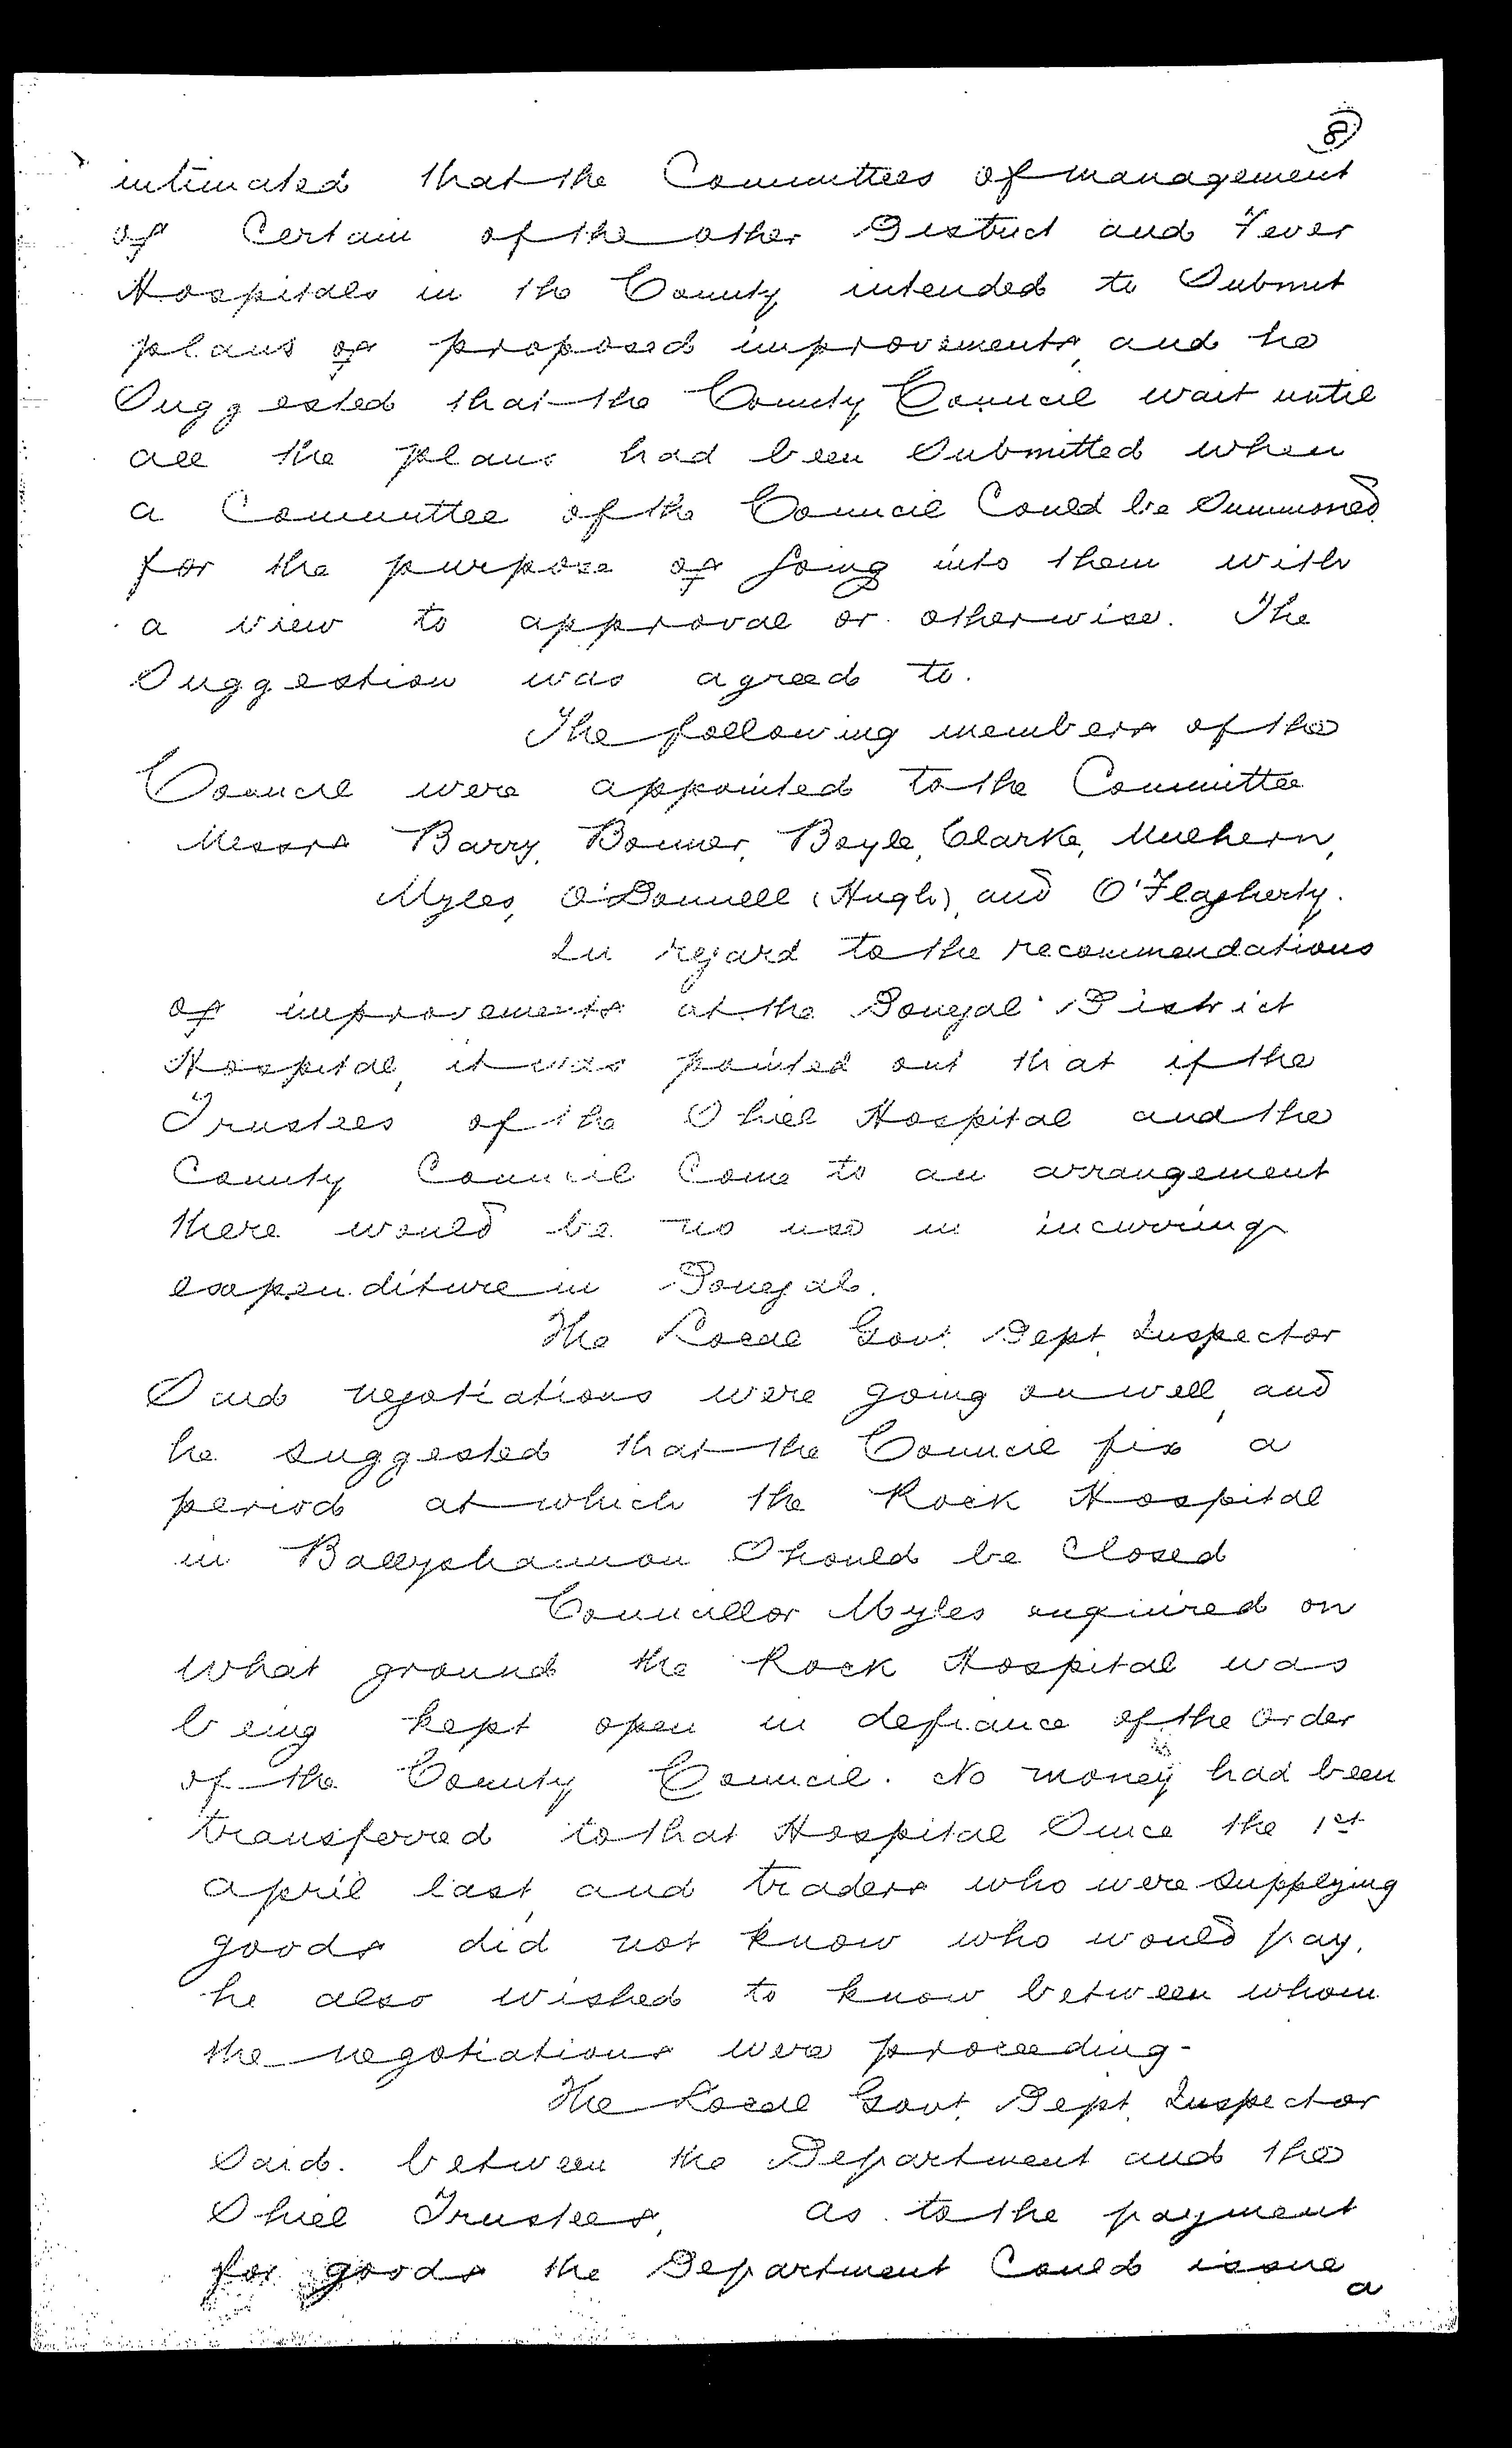 8
intimated that the Committees of management
of Certain of the other District and Fever
Hospitals in the County intended to Submit
plans of proposed improvements, and he
Suggested that the County Council wait until
all the plans had been Submitted when
a Committee of the Council Could be Summoned
for the purpose of going into them with
a view to approval or otherwise. The
Suggestion was agreed to.
The following members of the
Council were appointed to the Committee
Messrs Barry, Bonner, Boyle, Clarke, Mulhern,
Myles, O'Donnell (Hugh), and O'Flagherty.
In regard to the recommendations
of improvements at the Donegal District
Hospital, it was pointed out that if the
Trustees of the Shiel Hospital and the
County Council Come to an arrangement
there would be no use in incurring
expenditure in Donegal.
The Local Govt. Dept. Inspector
Said negotiations were going on well, and
he suggested that the Council fix a
period at which the Rock Hospital
in Ballyshannon Should be Closed
Councillor Myles enquired on
what ground the Rock Hospital was
being kept open in defiance of the Order
of the County Council. No money had been
transferred to that Hospital Since the 1st
April last, and traders who were supplying
goods did not know who would pay.
he also wished to know between whom
the negotiations were proceeding-
The Local Govt. Dept. Inspector
Said. between the Department and the
Shiel Trustees, As to the payment
for goods the Department Could issue
a